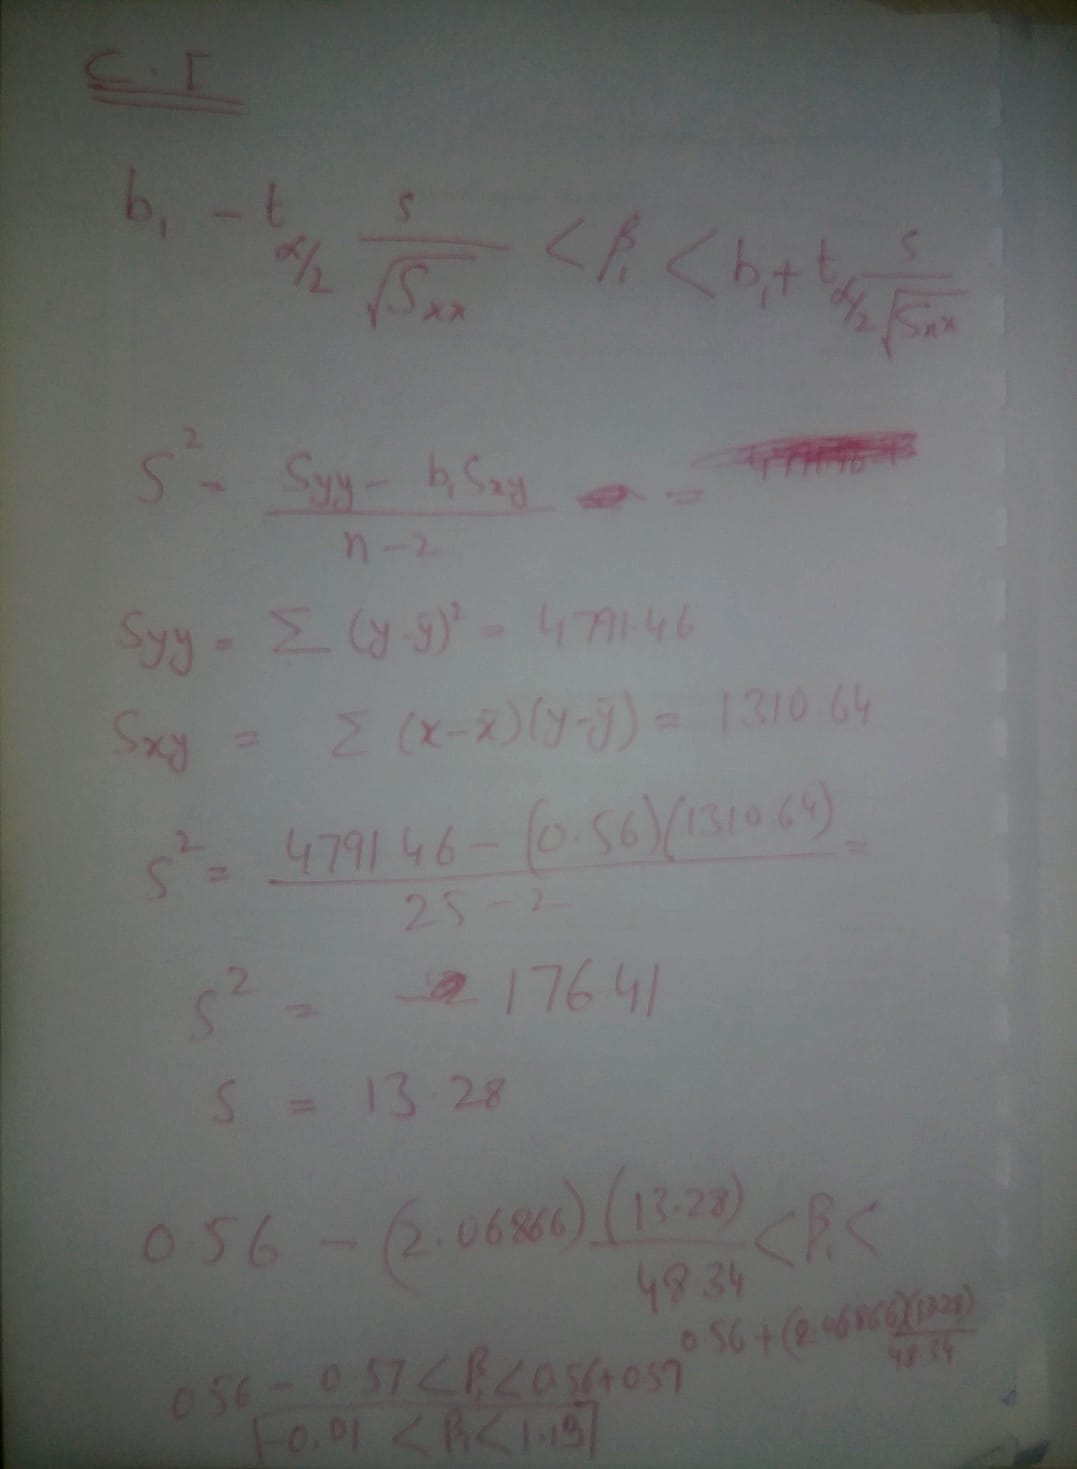 C.I
b₁ - t α/2 s/√Sxx < β₁ < b₁ + t α/2 s/√Sxx
S² = (Syy - b₁Sxy)/(n-2) =
Syy = Σ (y-ȳ)² = 4791.46
Sxy = Σ (x-x̄)(y-ȳ) = 1310.64
S² = (4791.46 - (0.56)(1310.64))/(25-2) =
S² = 176.41
S = 13.28
0.56 - (2.06866)(13.28)/48.34 < β₁ <
0.56 + (2.06866)(13.28)/48.34
0.56 - 0.57 < β₁ < 0.56+0.57
-0.01 < β₁ < 1.13